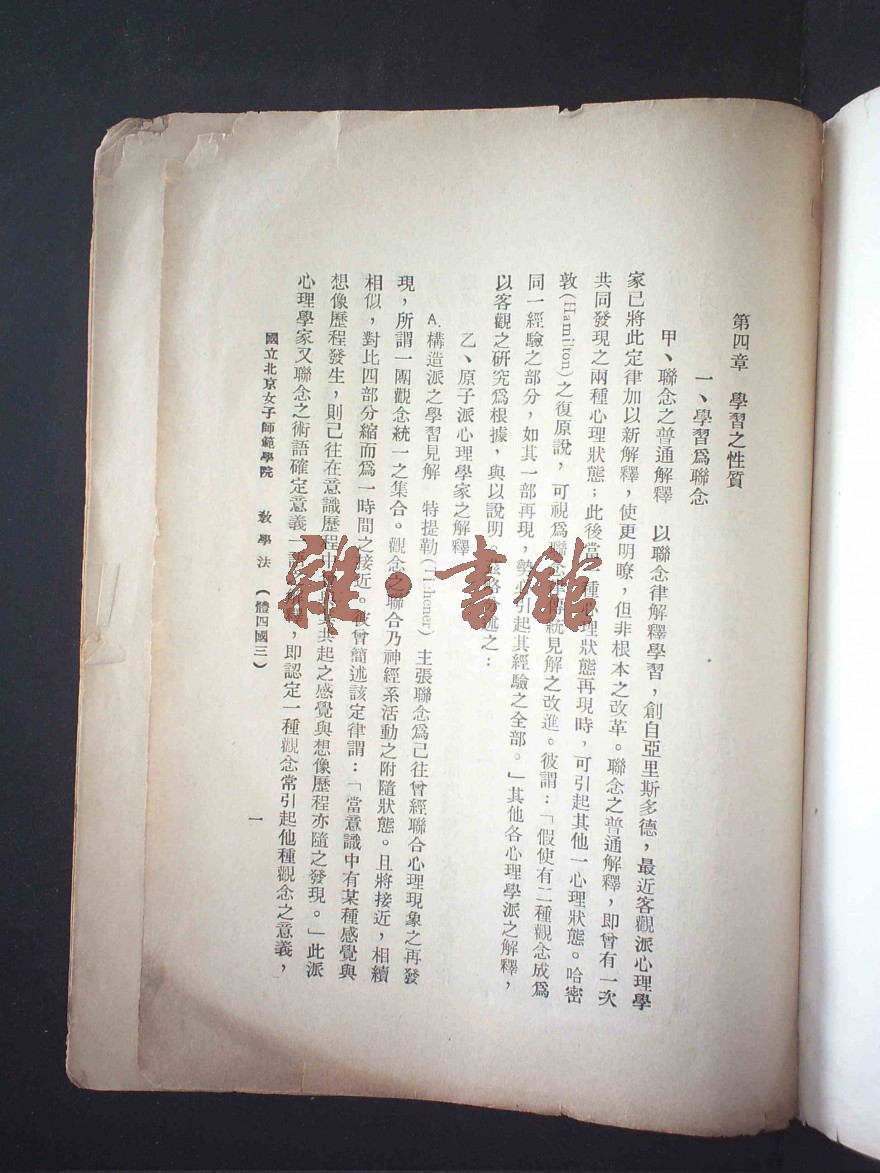 第四章　學習之性質
一、學習爲聯念
甲、聯念之普通解釋　以聯念律解釋學習，創自亞里斯多德，最近客觀派心理學
家已將此定律加以新解釋，使更明暸，但非根本之改革。聯念之普通解釋，即曾有一次
共同發現之兩種心理狀態；此後當種心理狀態再現時，可引起其他一心理狀態。哈密
敦(Hamilton)之復原說，可視爲聯念律傳統見解之改進。彼謂：「假使有二種觀念成爲
同一經驗之部分，如其一部再現，勢必引起其經驗之全部。」其他各心理學派之解釋，
以客觀之研究爲根據，與以說明。茲略述之：
乙、原子派心理學家之解釋
A.構造派之學習見解　特提勒(Tichener)主張聯念爲己往曾經聯合心理現象之再發
現，所謂一團觀念統一之集合。觀念之聯合乃神經系活動之附隨狀態。且將接近，相續
相似，對比四部分縮而爲一時間之接近。彼曾簡述該定律謂：「當意識中有某種感覺與
想像歷程發生，則己往在意識歷程中共起之感覺與想像歷程亦隨之發現。」此派
心理學家又聯念之術語確定意義一釋，即認定一種觀念常引起他種觀念之意義，
國立北京女子師範學院　教學法　(體四國三)　一
雜·書館